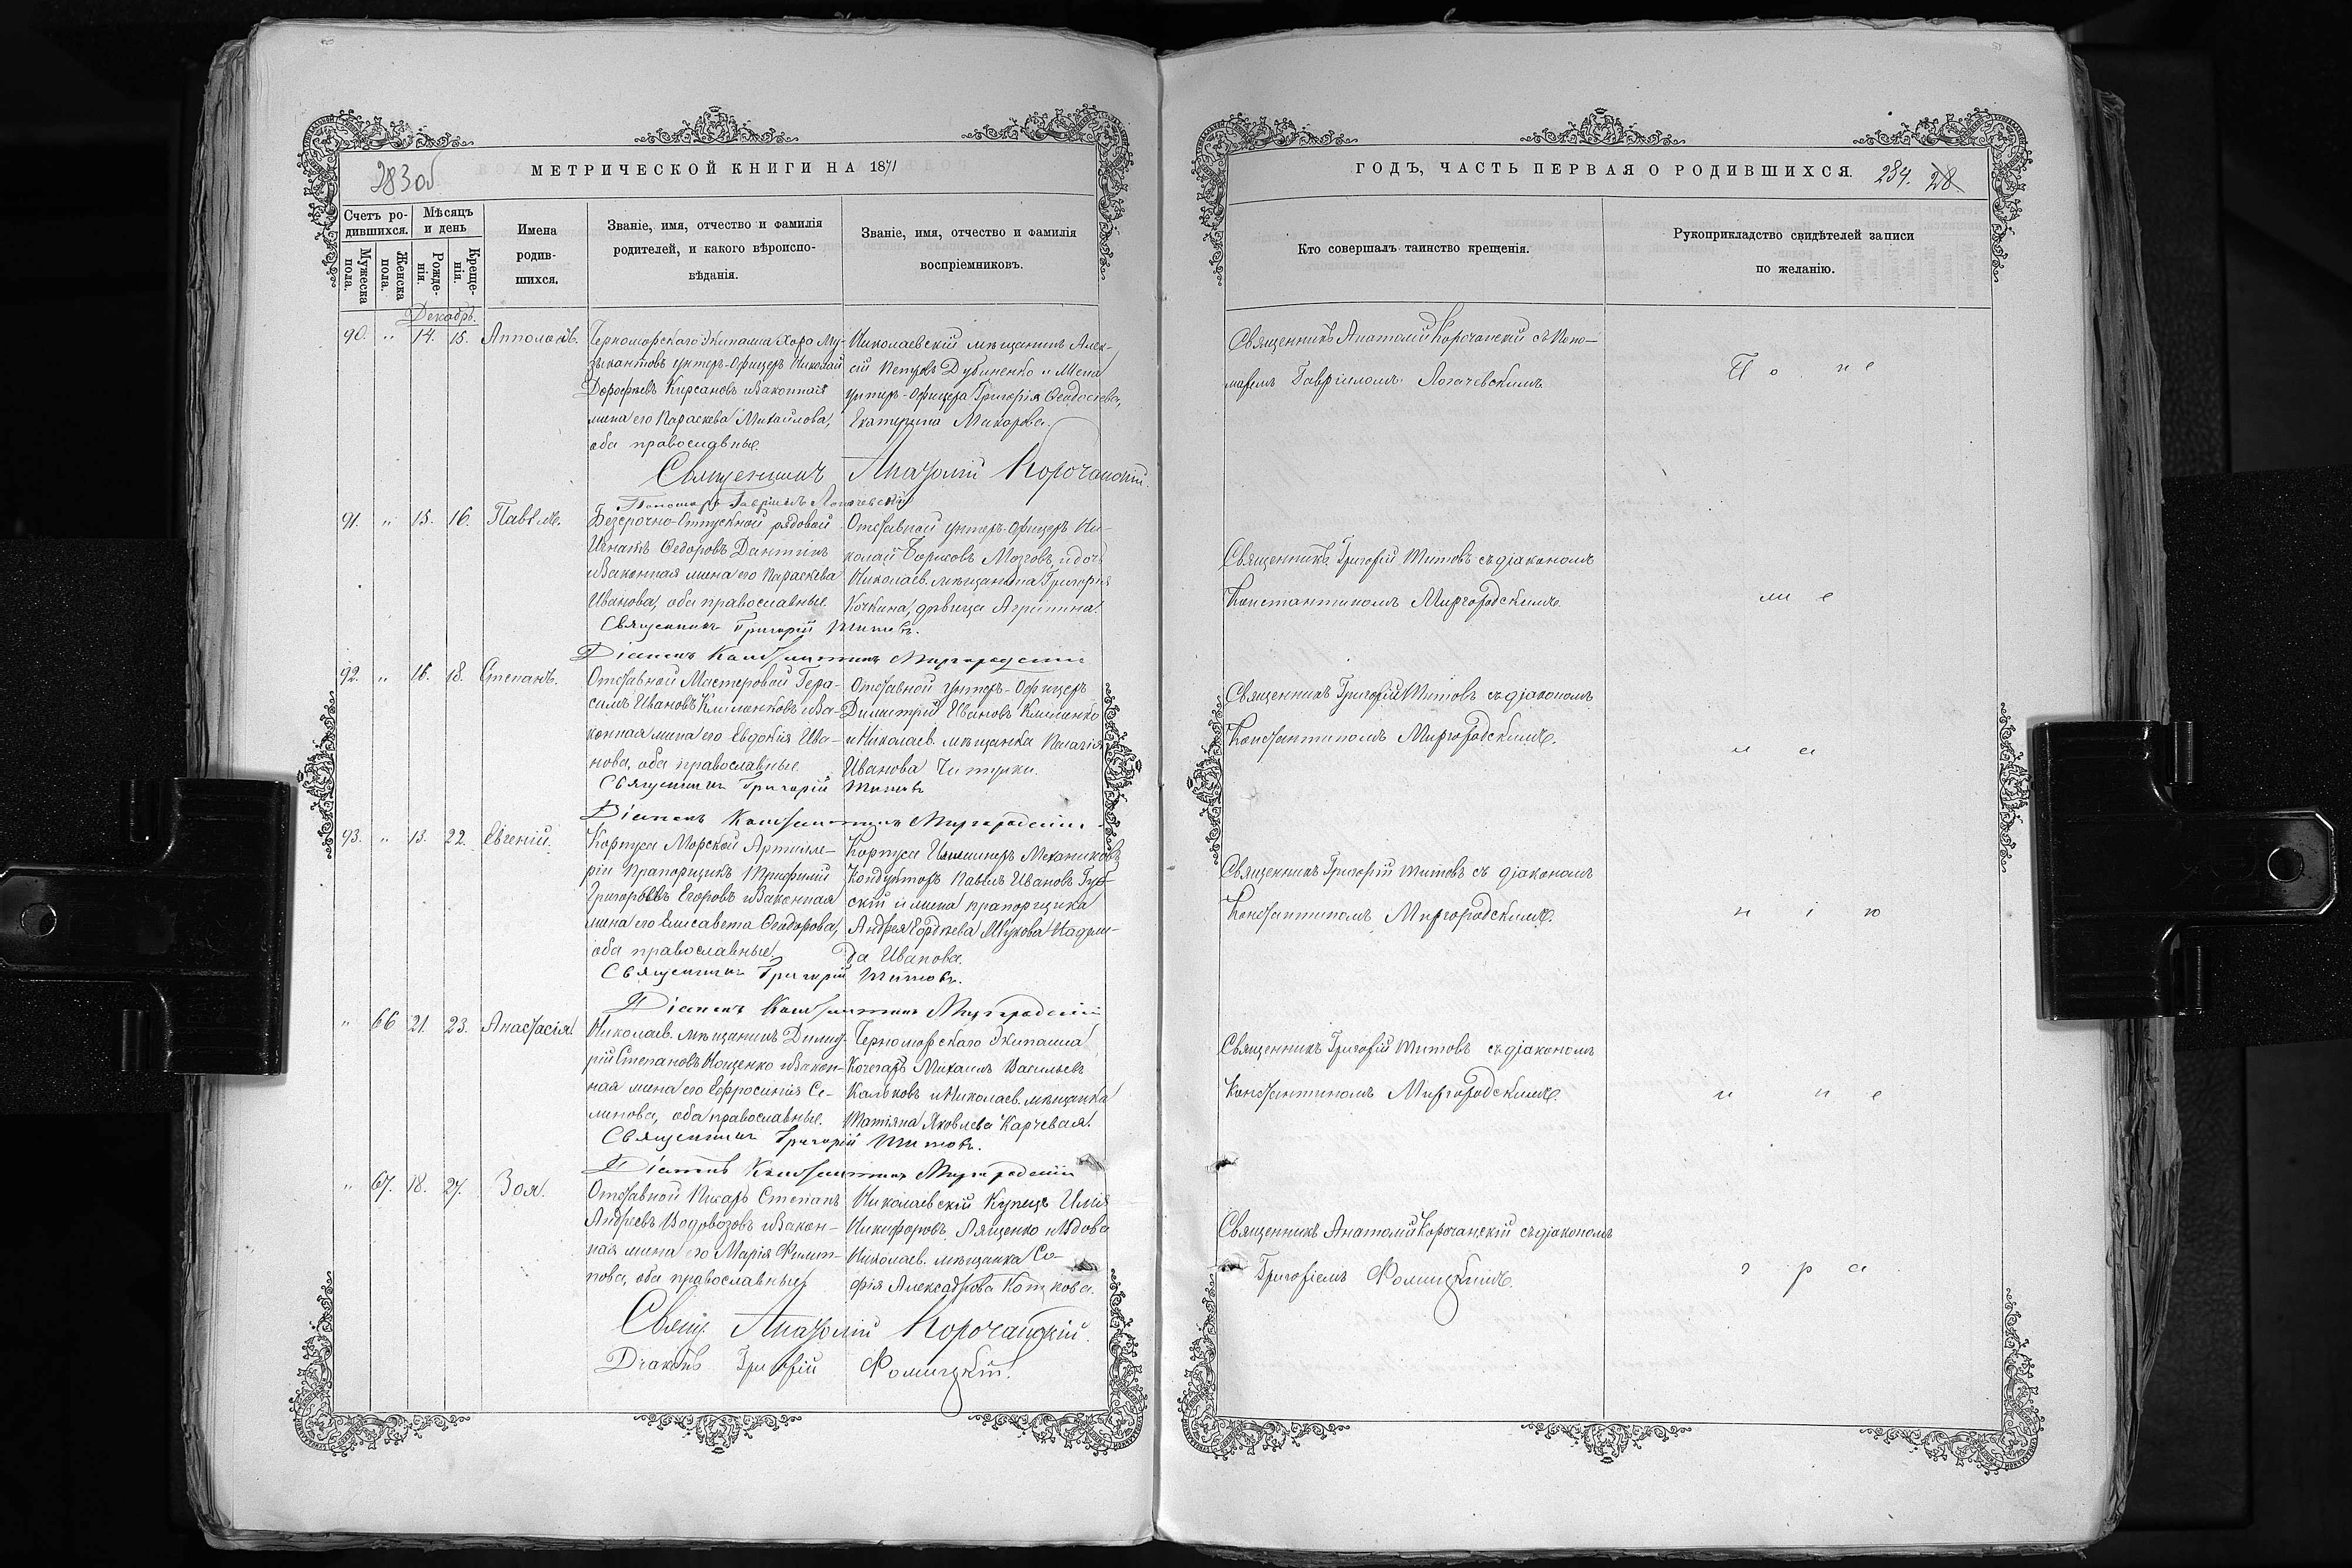 283 об
МЕТРИЧЕСКОЙ КНИГИ НА 1871
Счетъ ро-
дившихся.
Мужеска пола.
Женска пола.
Мѣсяцъ
и день
Рожде-
нія.
Креще-
нія.
Имена
родив-
шихся.
Званіе, имя, отчество и фамилія
родителей, и какого вѣроиспо-
вѣданія.
Званіе, имя, отчество и фамилія
воспріемниковъ.
Декабрь.
90. " 14. 15. Апполонъ.
Черноморскаго Экипажа Хора Му-
зыкантовъ унтеръ-Офицеръ Николай
Дорофѣевъ Кирсановъ и Законная
жена его Параскева Михайлова,
оба православные.
Николаевскій мѣщанинъ Алек-
сій Петровъ Дубиненко и Жена
унтеръ-Офицера Григорія Феодосіева,
Екатерина Макарова.
Священникъ Анатолій Корочанскій.
Пономарь Гавріилъ Логачевскій
91. " 15. 16. Павелъ.
Безсрочно-Отпускной рядовой
Игнатъ Федоровъ Дантинъ
и Законная жена его Параскева
Иванова, оба православные.
Отставной унтеръ-Офицеръ Ни-
колай Борисовъ Мозговъ, и дочь
Николаев. мѣщанина Григорія
Кочкина, дѣвица Агрипина.
Священникъ Григорій Титовъ.
Діаконъ Константинъ Миргородскій
92. " 16. 18. Степанъ.
Отставной Мастеровой Гера-
симъ Ивановъ Клименковъ и За-
конная жена его Евдокія Ива-
нова, оба православные.
Отставной унтеръ-Офицеръ
Димитрій Ивановъ Клименко
и Николаев. мѣщанка Пелагія
Иванова
Священникъ Григорій Титовъ
Діаконъ Константинъ Миргородскій.
93. " 13. 22. Евгеній.
Корпуса Морской Артилле-
ріи Прапорщикъ Трифилій
Григорьевъ Егоровъ и Законная
жена его Елисавета Феодорова,
оба православные.
Корпуса Инженеръ Механиковъ
Кондукторъ Павелъ Ивановъ Губ-
скій и жена прапорщика
Андрея Гордѣева Жукова Надеж-
да Иванова.
Священникъ Григорій Титовъ.
Діаконъ Константинъ Миргородскій
" 66 21. 23. Анастасія.
Николаев. мѣщанинъ Димит-
рій Степановъ Нощенко и Закон-
ная жена его Ефросинія Се-
менова, оба православные.
Черноморскаго Экипажа
Кочегаръ Михаилъ Васильевъ
Кальковъ и Николаев. мѣщанка
Татіяна Яковлева Карчевая.
Священникъ Григорій Титовъ.
Діаконъ Константинъ Миргородскій
" 67. 18. 27. Зоя.
Отставной Писарь Степанъ
Андреевъ Водовозовъ и Закон-
ная жена его Марія Филип-
пова, оба православные.
Николаевскій Купецъ Илія
Никифоровъ Ляшенко и Вдова
Николаев. мѣщанка Со-
фія Александрова Коткова.
Свящ. Анатолій Корочанскій.
Діаконъ Григорій Фомицкій.
ГОДЪ, ЧАСТЬ ПЕРВАЯ О РОДИВШИХСЯ. 284. 28
Кто совершалъ таинство крещенія.
Рукоприкладство свидѣтелей записи
по желанію.
Священникъ Анатолій Корочанскій съ Поно-
маремъ Гавріиломъ Логачевскимъ
П о н е
Священникъ Григорій Титовъ съ діакономъ
Константиномъ Миргородскимъ.
ж е
Священникъ Григорій Титовъ съ діакономъ
Константиномъ Миргородскимъ.
л а
Священникъ Григорій Титовъ съ діакономъ
Константиномъ Миргородскимъ.
н і ю
Священникъ Григорій Титовъ съ діакономъ
Константиномъ Миргородскимъ.
и н е
Священникъ Анатолій Корочанскій съ діакономъ
Григоріемъ Фомицкимъ.
г р а